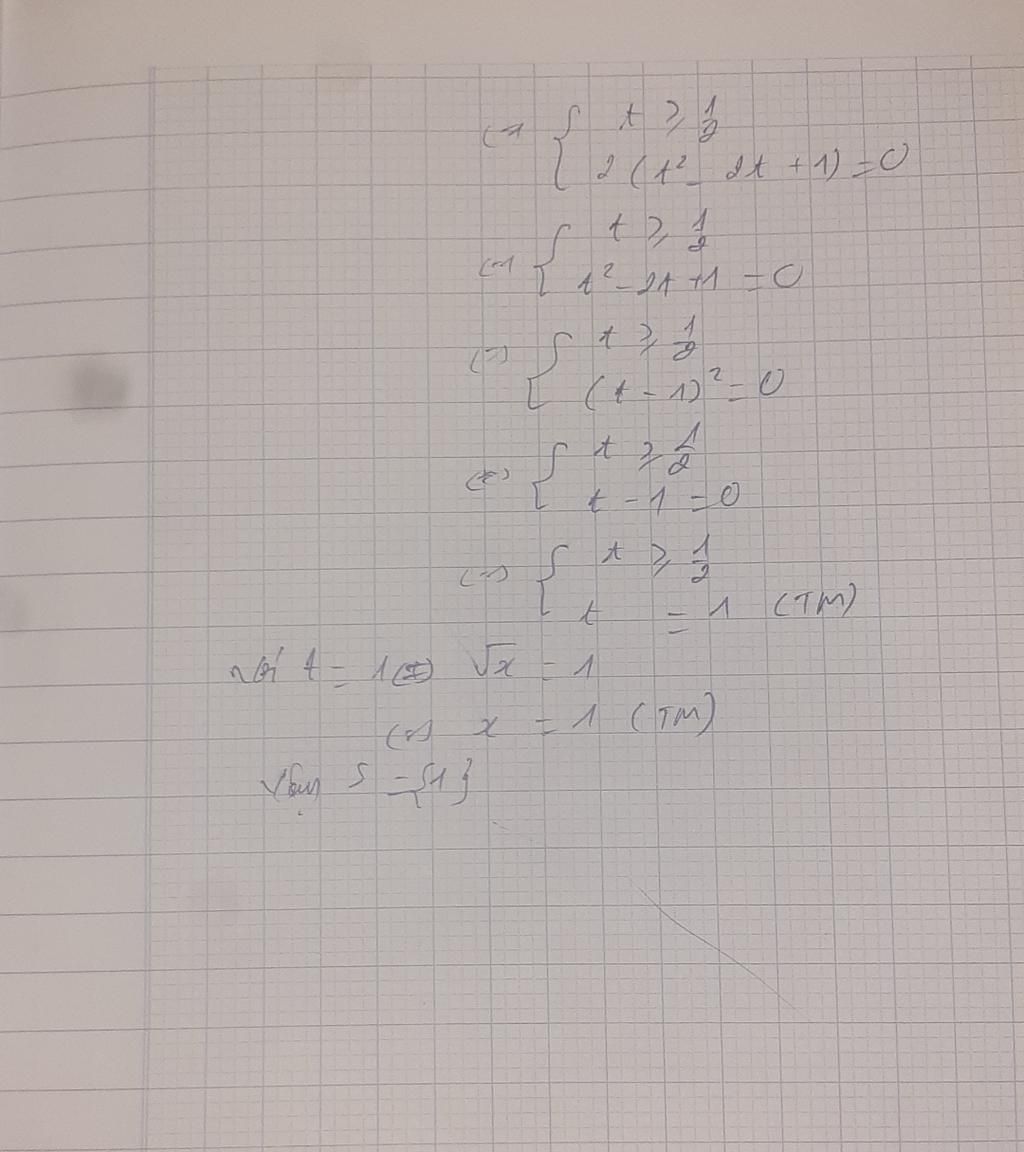 (=) { t ≥ 1/2
2(t² - 2t + 1) = 0
(=) { t ≥ 1/2
t² - 2t + 1 = 0
(=) { t ≥ 1/2
(t - 1)² = 0
(=) { t ≥ 1/2
t - 1 = 0
(=) { t ≥ 1/2
t = 1 (TM)
với t = 1 (=) √x = 1
(=) x = 1 (TM)
Vậy S = {1}